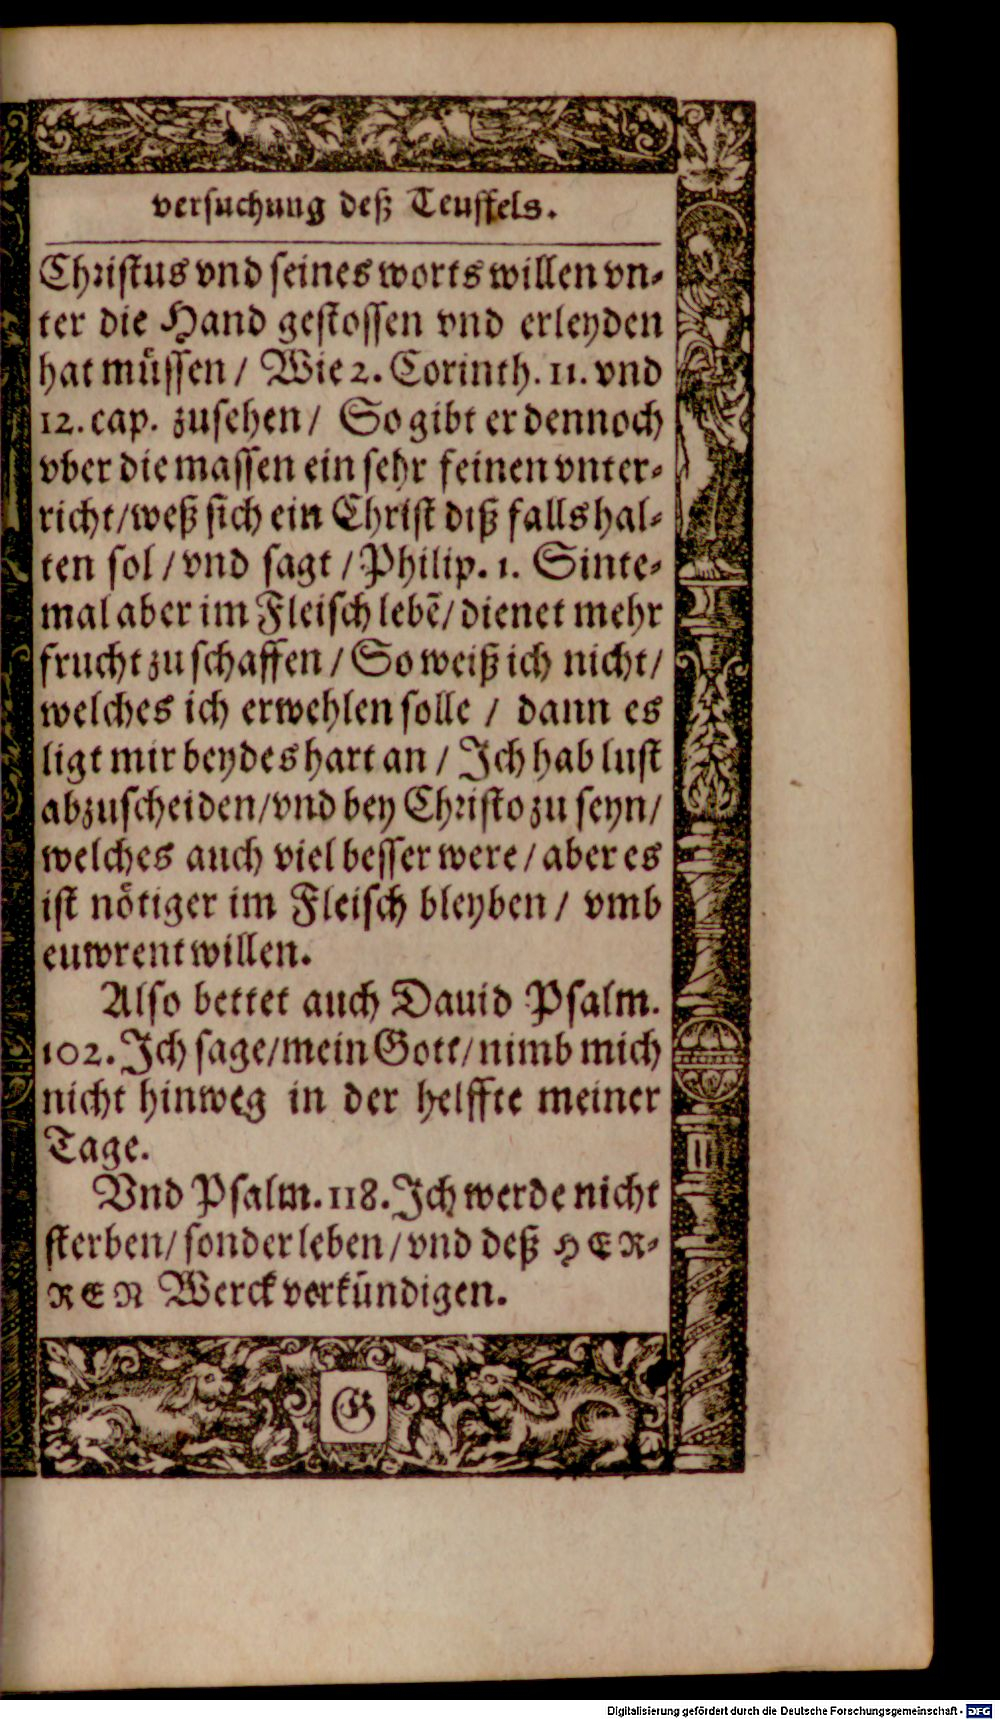 versuchung deß Teuffels.
Christus vnd seines worts willen vn-
ter die Hand gestossen vnd erleyden
hat müssen / Wie 2. Corinth. 11. vnd
12. cap. zusehen / So gibt er dennoch
vber die massen ein sehr feinen vnter-
richt/weß sich ein Christ diß falls hal-
ten sol / vnd sagt / Philip. 1. Sinte-
mal aber im Fleisch lebẽ/ dienet mehr
frucht zu schaffen / So weiß ich nicht/
welches ich erwehlen solle / dann es
ligt mir beydes hart an / Ich hab lust
abzuscheiden/vnd bey Christo zu seyn/
welches auch viel besser were / aber es
ist nötiger im Fleisch bleyben / vmb
euwrent willen.
Also bettet auch Dauid Psalm.
102. Ich sage/mein Gott/nimb mich
nicht hinweg in der helffte meiner
Tage.
Vnd Psalm. 118. Ich werde nicht
sterben/ sonder leben / vnd deß HER-
REN Werck verkündigen.
G
Digitalisierung gefördert durch die Deutsche Forschungsgemeinschaft - DFG